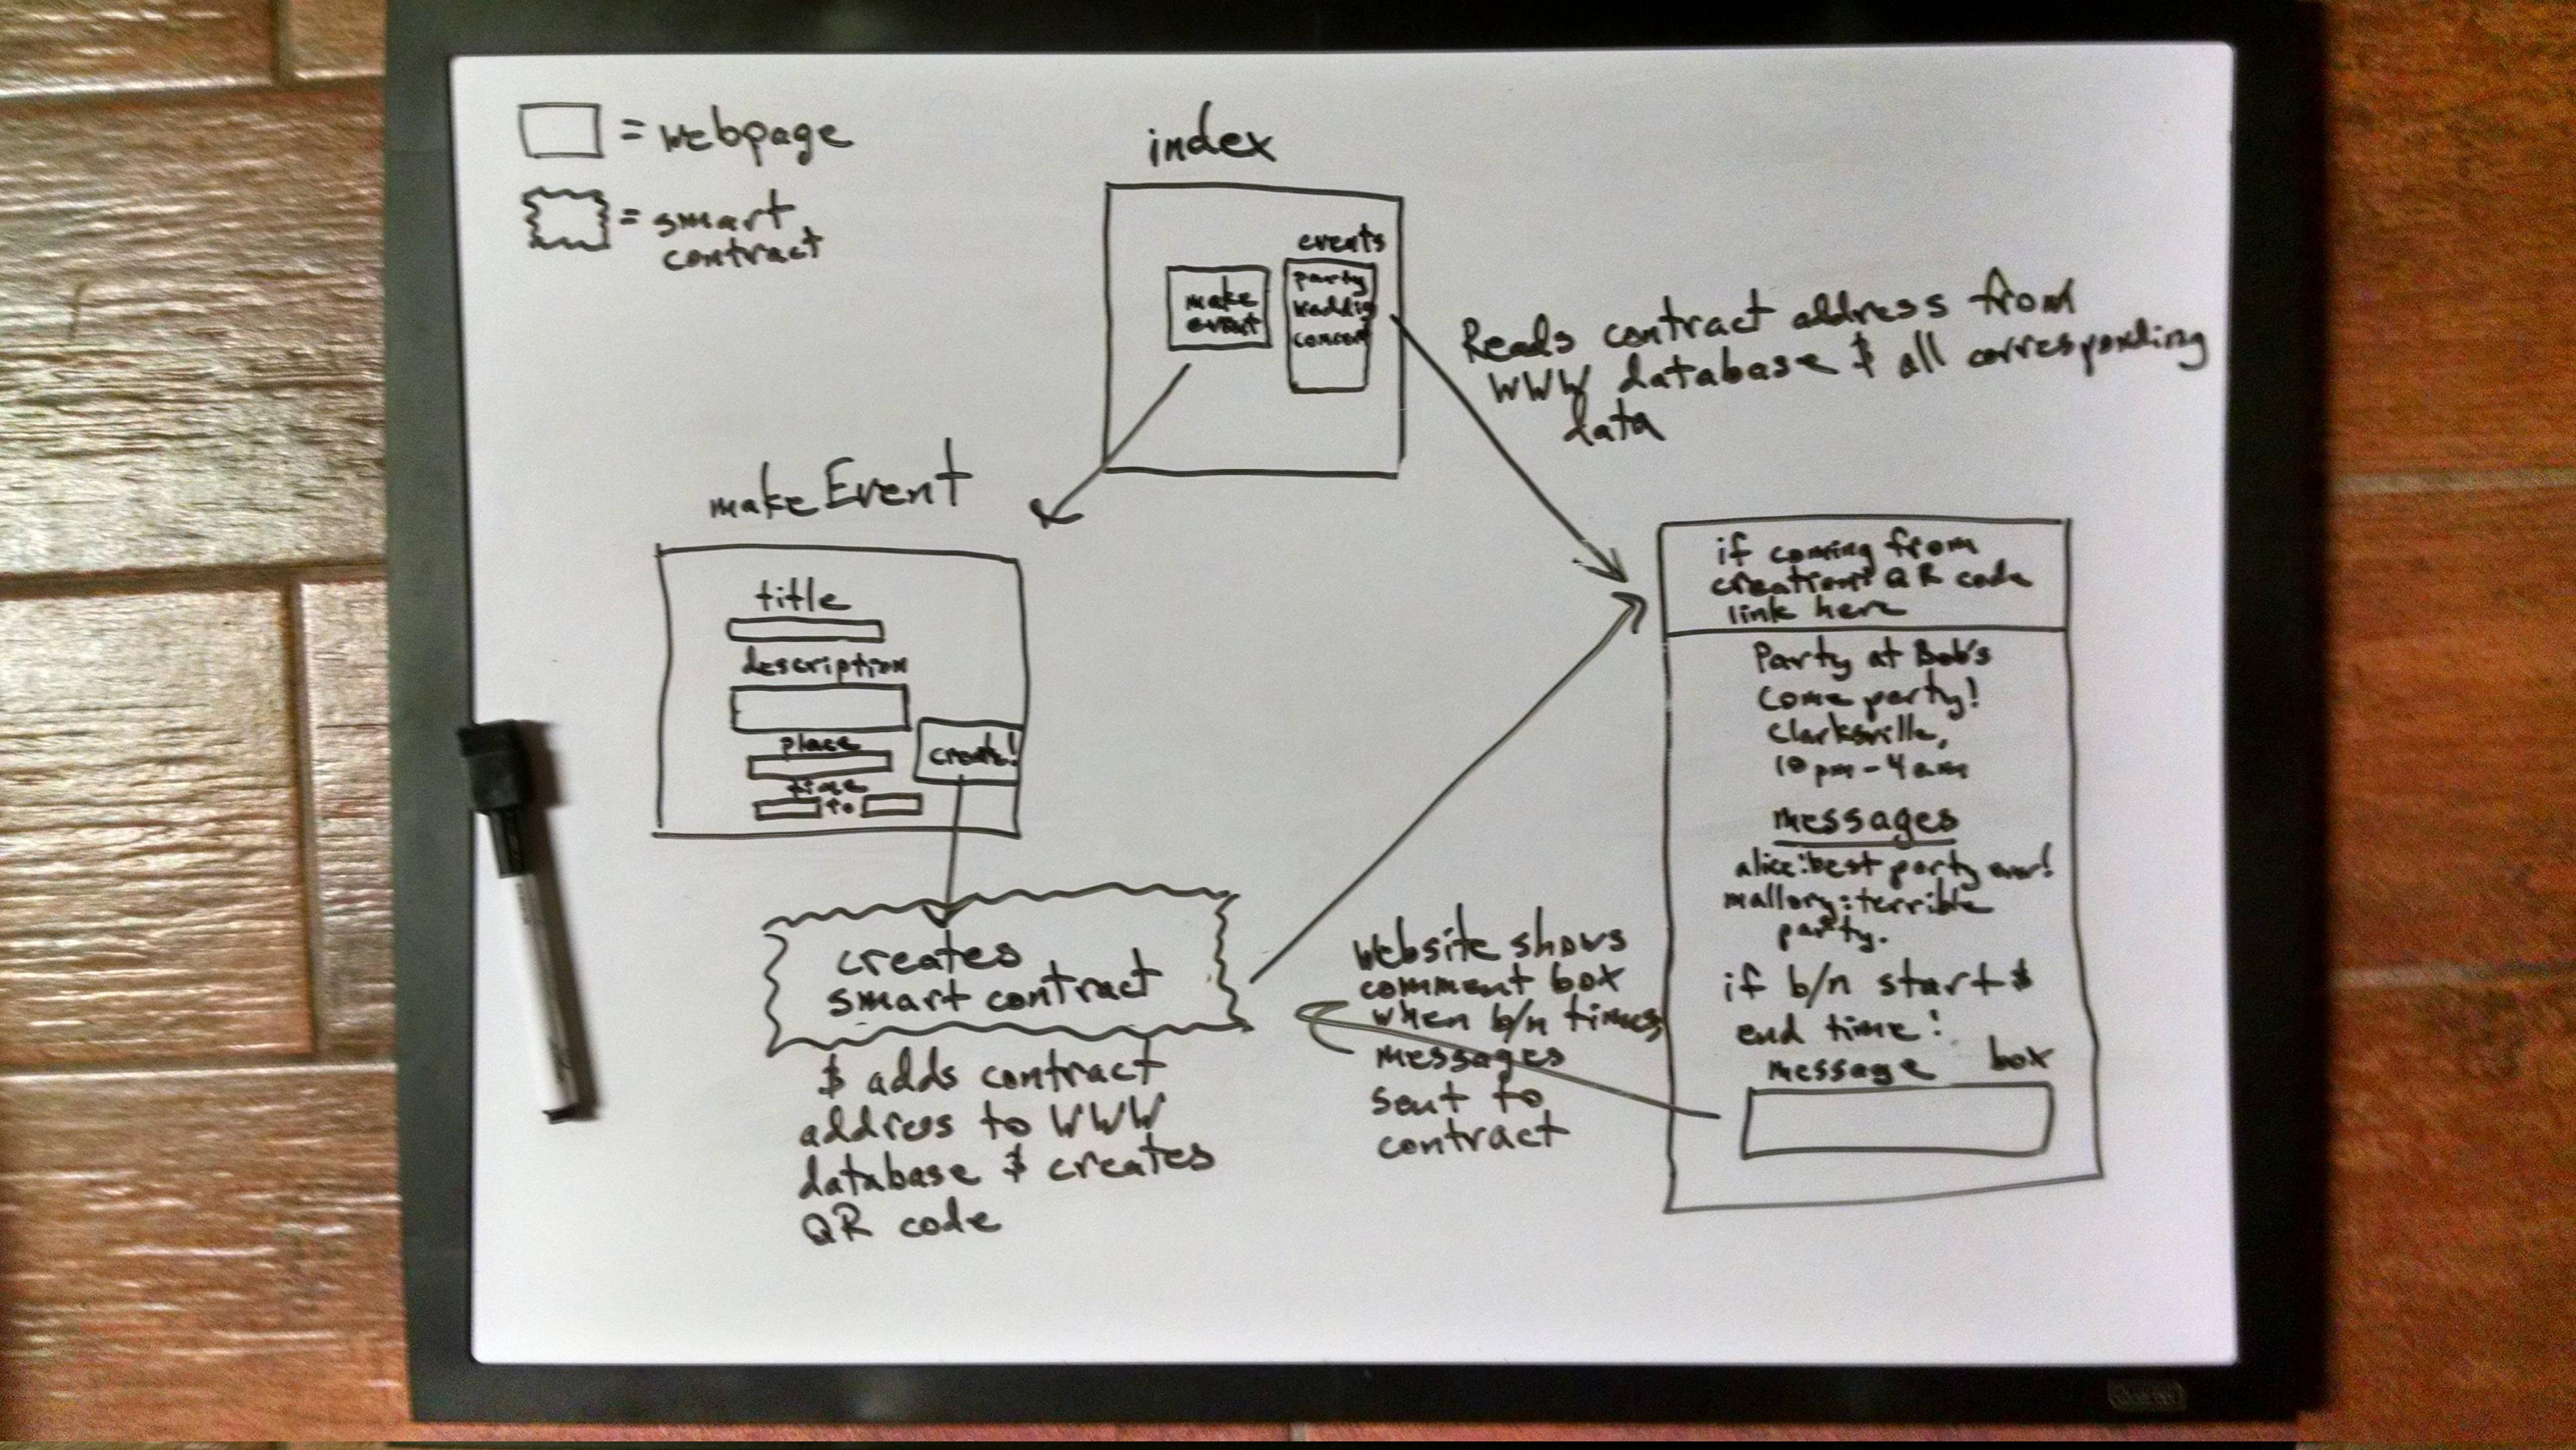 = webpage
= smart
contract
index
events
make
event
party
weddig
concert
Reads contract address from
WWW database & all corresponding
data
makeEvent
title
description
place
time
to
create!
creates
smart contract
& adds contract
address to WWW
database & creates
QR code
Website shows
comment box
when b/n times,
messages
sent to
contract
if coming from
creation: QR code
link here
Party at Bob's
Come party!
Clarksville,
10pm-4am
messages
alice:best party ever!
mallory:terrible
party.
if b/n start &
end time:
message box